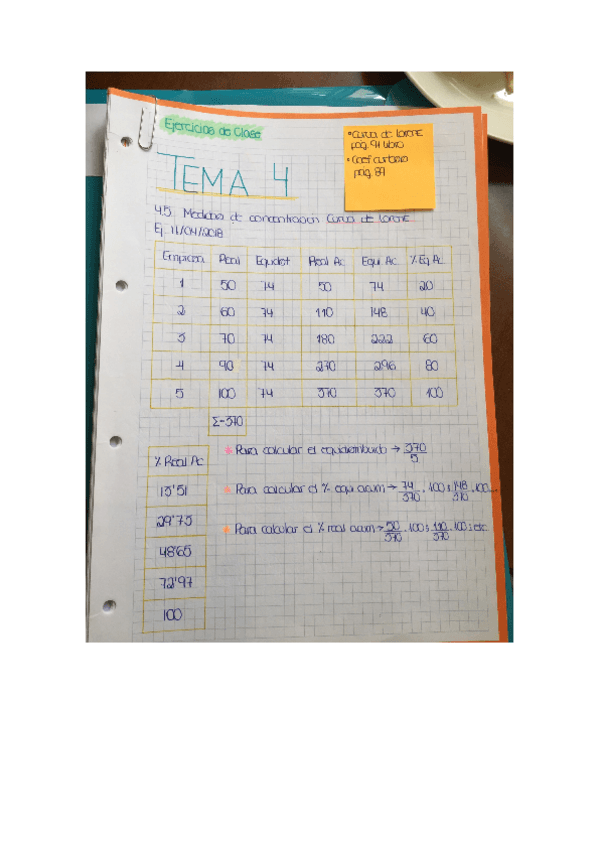 Ejercicios de Clase
• Curva de Lorenc
pág. 91 libro
• Coef curtosis
pág. 89
TEMA 4
4.5 Medidas de concentracion Curva de Lorenc
Ej. 11/04/2018
Empresa Real Equidist Real Ac. Equi Ac. % Eq Ac
1 50 74 50 74 20
2 60 74 110 148 40
3 70 74 180 222 60
4 90 74 270 296 80
5 100 74 370 370 100
Σ=370
% Real Ac
13'51
29'73
48'65
72'97
100
* Para calcular el equidistribuido → 370/5
* Para calcular el % equi acum → 74/370 . 100; 148/370 . 100...
* Para calcular el % real acum → 50/370 . 100; 110/370 . 100; etc